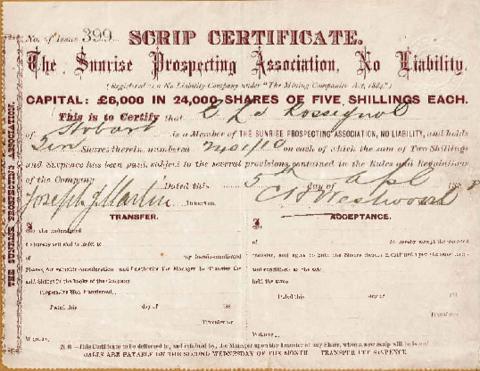 No. of Issue 399 SCRIP CERTIFICATE.
The Sunrise Prospecting Association, No Liability.
(Registered as a No Liability Company under "The Mining Companies Act, 1884.")
CAPITAL: £6,000 IN 24,000 SHARES OF FIVE SHILLINGS EACH.
This is to Certify that E Le Rossignol
of Hobart is a Member of THE SUNRISE PROSPECTING ASSOCIATION, NO LIABILITY, and holds
Ten Shares therein, numbered on each of which the sum of Two Shillings
and Sixpence has been paid, subject to the several provisions contained in the Rules and Regulations
of the Company. Dated this 5th day of Apl 188
Joseph J Martin C H Westwood
TRANSFER. ACCEPTANCE.
I, the undersigned
of
do hereby accept the
my
Shares, for valuable consideration and I authorise the Manager to Transfer the
said Shares in the books of the Company
Dated this day of 188
Dated this day of 188
Transferror
Witness
Witness
N.B.—This Certificate to be delivered to, and retained by, the Manager upon the Transfer of any Share, when a new scrip will be issued
CALLS ARE PAYABLE ON THE SECOND WEDNESDAY OF THE MONTH TRANSFER FEE SIXPENCE
THE SUNRISE PROSPECTING ASSOCIATION.